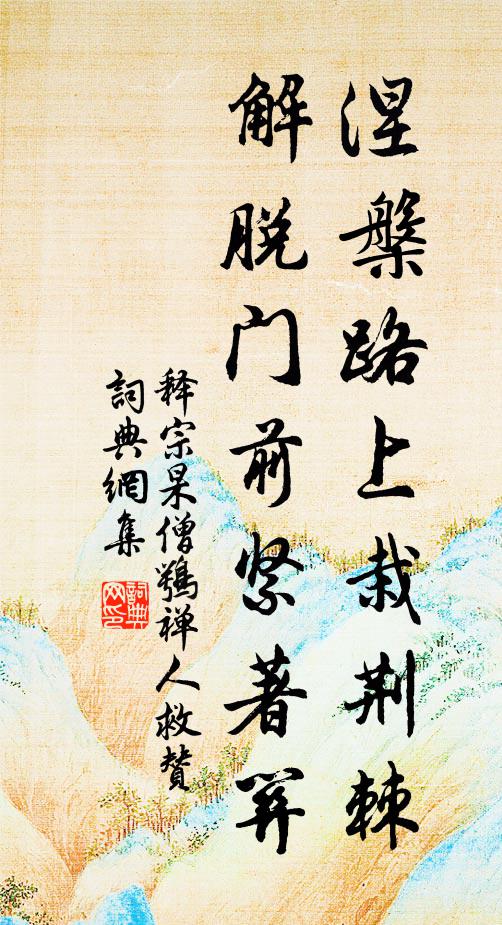 涅槃路上栽荆棘
解脱门前紧著关
释宗杲僧鹗禅人救赞
詞典網集
詞典网印